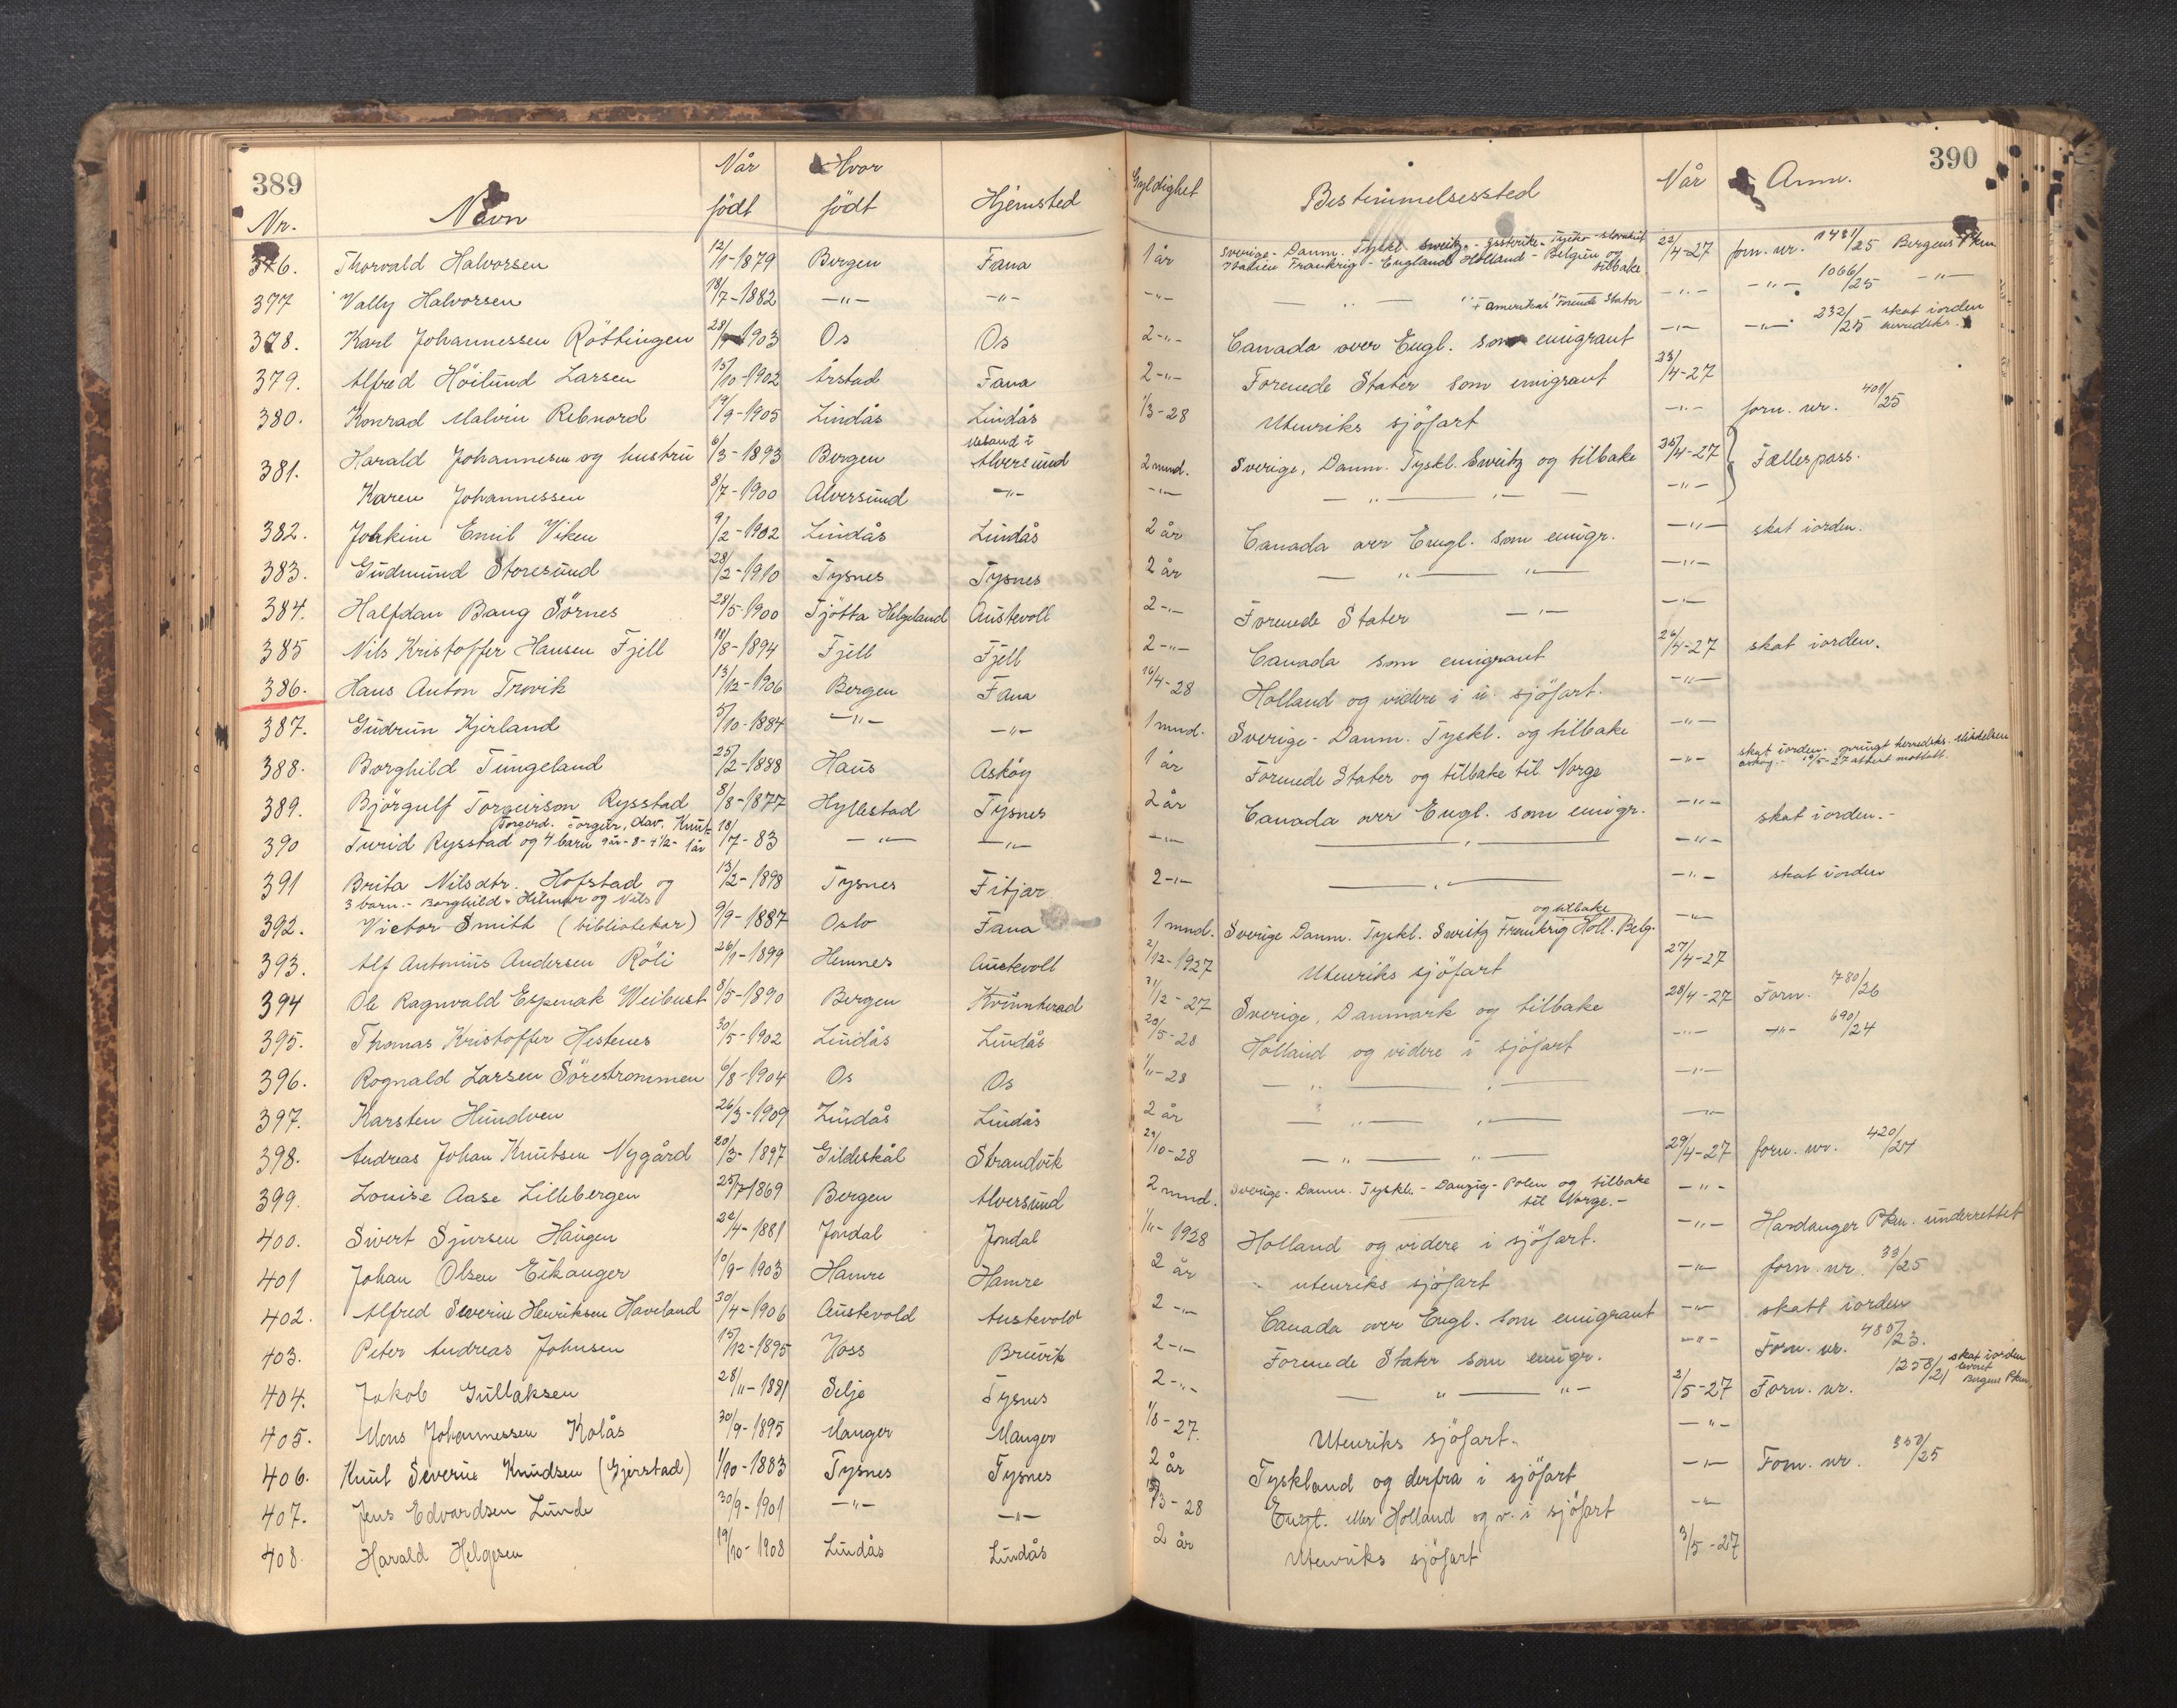 389
390
Nr. Navn Når født Hvor født Hjemsted Gyldighet Bestemmelsessted Når Anm.
376. Thorvald Halvorsen 12/1-1879 Bergen Fana 1 år Sverige - Danm. Tyskl. Sweitz - Østerike - Tjeko-Slovakiet Italien Frankrig - England Holland - Belgien og tilbake 22/4-27 forn. nr. 1431/25 Bergens Pkm.
377 Vally Halvorsen 18/7-1882 -"- -"- -"- - " - + Amerikas Forende Stater -"- -"- 1066/25 -"-
378. Karl Johannessen Röttingen 28/ 1903 Os Os 2-"- Canada over Engl. som emigrant -"- -"- 232/25 skat iorden
379. Alfred Höilund Larsen 15/10-1902 Årstad Fana 2-"- Forenede Stater som emigrant 23/4-27
380. Konrad Malvin Rebnord 19/9-1905 Lindås Lindås 1/3-28 Utenriks sjöfart -"- forn. nr. 401/25
381. Harald Johannesen og hustru 6/3-1893 Bergen Alversund 2 mnd. Sverige, Danm. Tyskl. Sweitz og tilbake 25/4-27 Fællespass.
Karen Johannessen 8/7-1900 Alversund -"- -"- - " - " - -"-
382. Joakim Emil Viken 9/2-1902 Lindås Lindås 2 år Canada over Engl. som emigr. -"- skat iorden.
383. Gudmund Storesund 28/2-1910 Tysnes Tysnes 2 år - " - " - -"-
384. Halfdan Bang Sörnes 28/5-1900 Tjötta Helgeland Austevoll 2-"- Forenede Stater -"- -"-
385 Nils Kristoffer Hansen Fjell 18/8-1894 Fjell Fjell 2-"- Canada som emigrant 26/4-27 skat iorden.
386. Hans Anton Trovik 13/12-1906 Bergen Fana 16/4-28 Holland og videre i u. sjöfart. -"-
387. Gudrun Kjerland 5/10-1884 -"- -"- 1 mnd. Sverige - Danm. Tyskl. og tilbake -"-
388. Borghild Tungeland 25/2-1888 Haus Asköy 1 år Forenede Stater og tilbake til Norge -"- skat iorden. herredsks. Asköy. - 10/5-27 attest mottatt.
389. Björgulf Torgeirson Rysstad 8/8-1877 Hyllestad Tysnes 2 år Canada over Engl. som emigr. -"- skat iorden.-
Torgerd. Torgeir, Olav. Knut-
390 Turid Rysstad og 4 barn 9 år - 8 - 4 1/2 - 1 år 18/7-83 -"- -"- -"- - " - -"-
391 Brita Nilsdtr. Hofstad og 13/2-1898 Tysnes Fitjar 2-"- - " - -"- skat iorden
3 barn. - Borghild - Hilmar og Nils
392. Victor Smith (bibliotekar) 9/9-1887 Oslo Fana 1 mnd. Sverige Danm. Tyskl. Sweitz Frankrig Holl. Belg. og tilbake -"-
393. Alf Antonius Andersen Röli 26/1-1899 Hemnes Austevoll 2/12-1927 Utenriks sjöfart 27/4-27
394 Ole Ragnvald Espenak Weibust 8/5-1890 Bergen Kvinnherad 31/12-27 Sverige, Danmark og tilbake 28/4-27 Forn. 780/26
395. Thomas Kristoffer Hestenes 30/5-1902 Lindås Lindås 20/5-28 Holland og videre i sjöfart -"- -"- 690/24
396. Rognald Larsen Sörestrommen 6/8-1904 Os Os 1/11-28 - " - " - -"-
397. Karsten Hundven 26/3-1909 Lindås Lindås 2 år - " - " - -"-
398. Andreas Johan Knutsen Nygård 20/3-1897 Gildeskål Strandvik 29/10-28 - " - " - 29/4-27 forn. nr. 420/24
399. Louise Aase Lillebergen 25/7-1869 Bergen Alversund 2 mnd. Sverige - Danm. Tyskl. - Danzig - Polen og tilbake til Norge.- -"-
400. Sivert Sjursen Haugen 22/4-1881 Jondal Jondal 1/11-1928 Holland og videre i sjöfart. -"- Hardanger Pkm. underrettet
401 Johan Olsen Eikanger 10/9-1903 Hamre Hamre 2 år utenriks sjöfart -"- forn. nr. 33/25
402. Alfred Severin Henriksen Haveland 30/4-1906 Austevold Austevold 2-"- Canada over Engl. som emigrant -"- skatt iorden
403. Peter Andreas Johnsen 15/12-1895 Voss Bruvik 2-"- Forenede Stater som emigr. -"- Forn. nr. 480/23.
404. Jakob Gullaksen 28/11-1881 Selje Tysnes 2-"- - " - " - 2/5-27 Forn. nr. 1258/21 skat iorden Bergens Pkm.
405. Mons Johannessen Kolås 30/9-1895 Manger Manger 1/8-27. Utenriks sjöfart. -"-
406. Knut Severin Knudsen (Gjerstad) 1/10-1883 Tysnes Tysnes 2 år Tyskland og derfra i sjöfart -"- Forn. nr. 350/25
407. Jens Edvardsen Lunde 30/9-1901 -"- -"- /3-28 Engl. eller Holland og v. i sjöfart -"-
408. Harald Helgesen 19/10-1908 Lindås Lindås 2 år Utenriks sjöfart 3/5-27